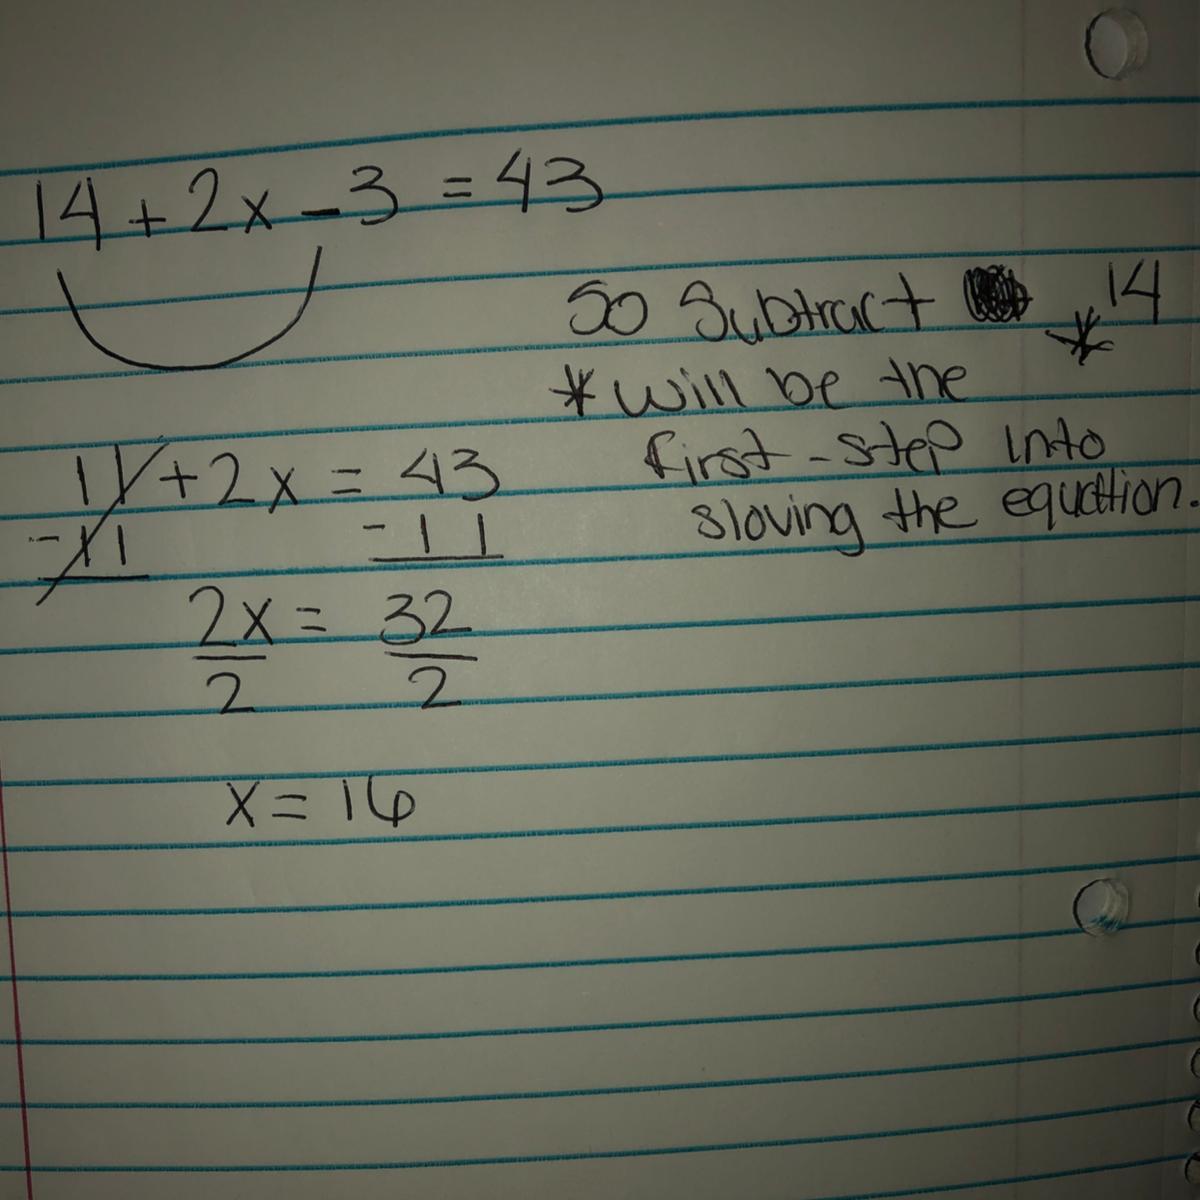 14 + 2x - 3 = 43
So Subtract *14
* will be the
first - step into
sloving the equation.
11 + 2x = 43
- 11 - 11
2x = 32
2 2
x = 16